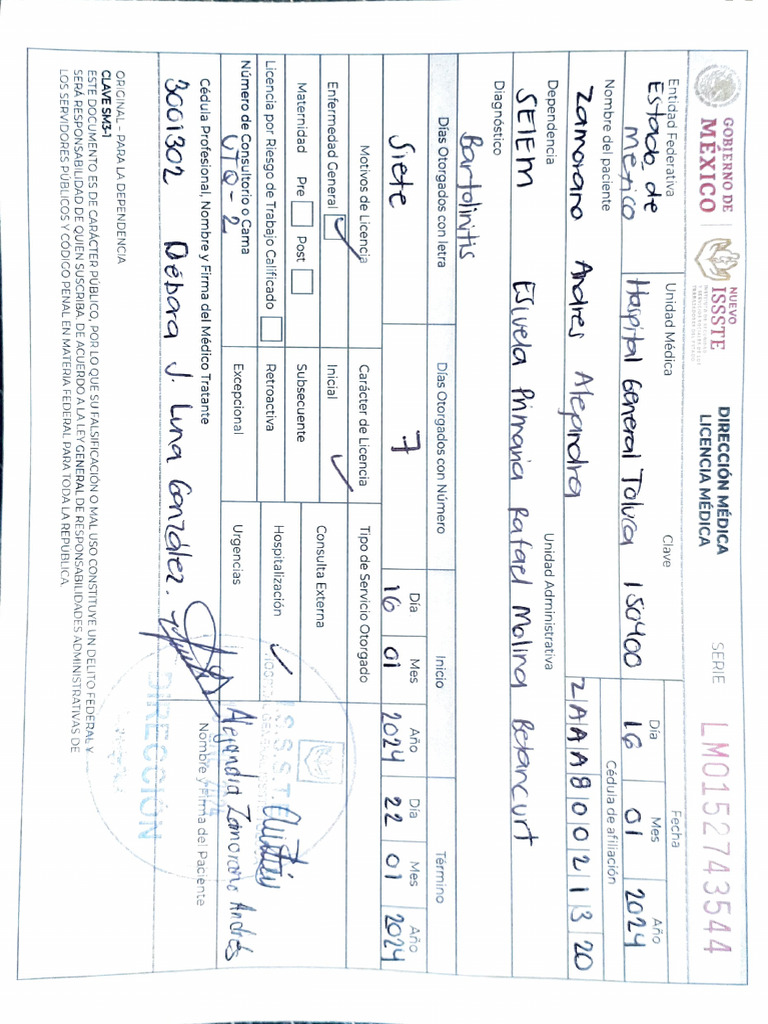 GOBIERNO DE
MÉXICO
NUEVO
ISSSTE
DIRECCIÓN MÉDICA
LICENCIA MÉDICA
SERIE LM0152743544
Entidad Federativa Unidad Médica Clave Fecha
Día Mes Año
Estado de
México
Hospital General Toluca 150400 16 01 2024
Nombre del paciente Cédula de afiliación
Zamorano Andres Alejandra ZAAA80021320
Dependencia Unidad Administrativa
SEIEM Escuela Primaria Rafael Molina Betancurt
Diagnóstico
Bartolinitis
Días Otorgados con letra Días Otorgados con Número Inicio Término
Día Mes Año Día Mes Año
Siete 7 16 01 2024 22 01 2024
Motivos de Licencia Carácter de Licencia Tipo de Servicio Otorgado
Enfermedad General ✓ Inicial ✓ Consulta Externa
Maternidad Pre Post Subsecuente
Licencia por Riesgo de Trabajo Calificado Retroactiva Hospitalización ✓
Número de Consultorio o Cama Excepcional Urgencias
UTQ-2
Alejandra Zamorano Andrés
Cédula Profesional, Nombre y Firma del Médico Tratante Nombre y Firma del Paciente
3001302 Débora J. Luna González.
I.S.S.S.T.E
DIRECCIÓN
ORIGINAL - PARA LA DEPENDENCIA
CLAVE SM3-1
ESTE DOCUMENTO ES DE CARÁCTER PÚBLICO, POR LO QUE SU FALSIFICACIÓN O MAL USO CONSTITUYE UN DELITO FEDERAL Y
SERÁ RESPONSABILIDAD DE QUIEN SUSCRIBA, DE ACUERDO A LA LEY GENERAL DE RESPONSABILIDADES ADMINISTRATIVAS DE
LOS SERVIDORES PÚBLICOS Y CÓDIGO PENAL EN MATERIA FEDERAL PARA TODA LA REPÚBLICA.